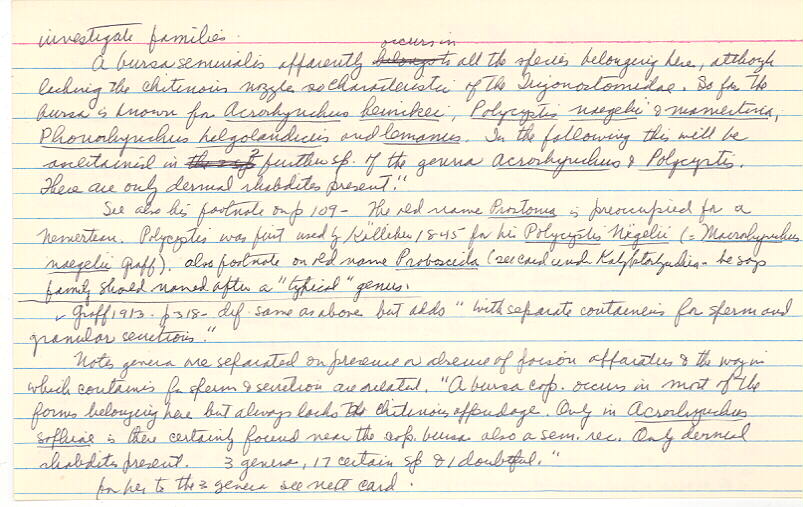 investigate families.
A bursa seminalis apparently belongs to occurs in all the species belonging here, although
lacking the chitinous nozzle so characteristic of the Trigonostomidae. So far the
bursa is known for Acrorhynchus heinckei, Polycystis naegelii & mamertina,
Phonorhynchus helgolandicus and lemanus. In the following this will be
ascertained in 2 further sp. of the genera Acrorhynchus & Polycystis.
There are only dermal rhabdites present."
See also his footnote on p 109 - The old name Prostoma is preoccupied for a
nemertean. Polycystis was first used by Kölliker 1845 for his Polycystis Nägelii (= Macrorhynchus
naegelii Graff). also footnote on old name Proboscida (see card under Kalyptorhynchia - he says
family should named after a "typical" genus.
Graff 1913. p 318 - def. same as above but adds "with separate containers for sperm and
granular secretions."
Notes genera are separated on presence or absence of poison apparatus & the way in
which containers for sperm & secretion are related. "A bursa cop. occurs in most of the
forms belonging here but always lacks the chitinous appendage. Only in Acrorhynchus
sophiae is there certainly found near the cop. bursa also a sem. rec. Only dermal
rhabdites present. 3 genera, 17 certain sp & 1 doubtful."
for key to the 3 genera see next card.